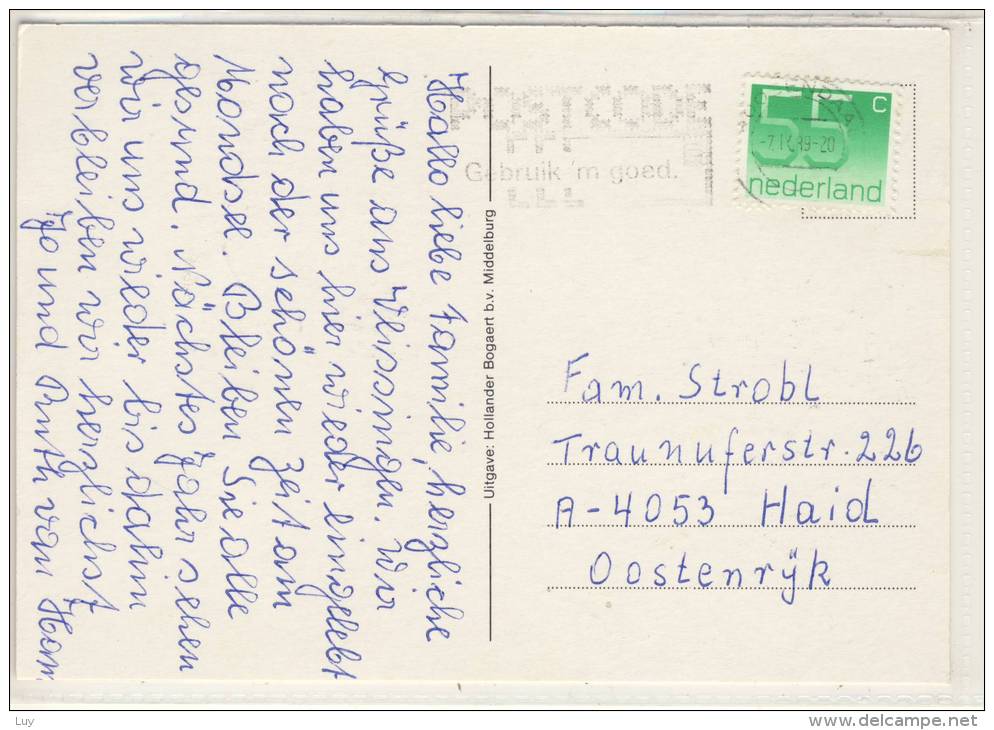 Hallo liebe Familie, herzliche
Grüße aus Vlissingen. Wir
haben uns hier wieder eingelebt
nach der schönen Zeit am
Mondsee. Bleiben Sie alle
gesund. Nächstes Jahr sehen
wir uns wieder bis dahin
verbleiben wir herzlichst
Jo und Ruth van Ham
Uitgave: Hollander Bogaert b.v. Middelburg
POSTCODE
Gebruik 'm goed.
55
C
-7.IX.89-20
nederland
Fam. Strobl
Traunuferstr. 226
A-4053 Haid
Oostenrijk
Luy
delcampe.net